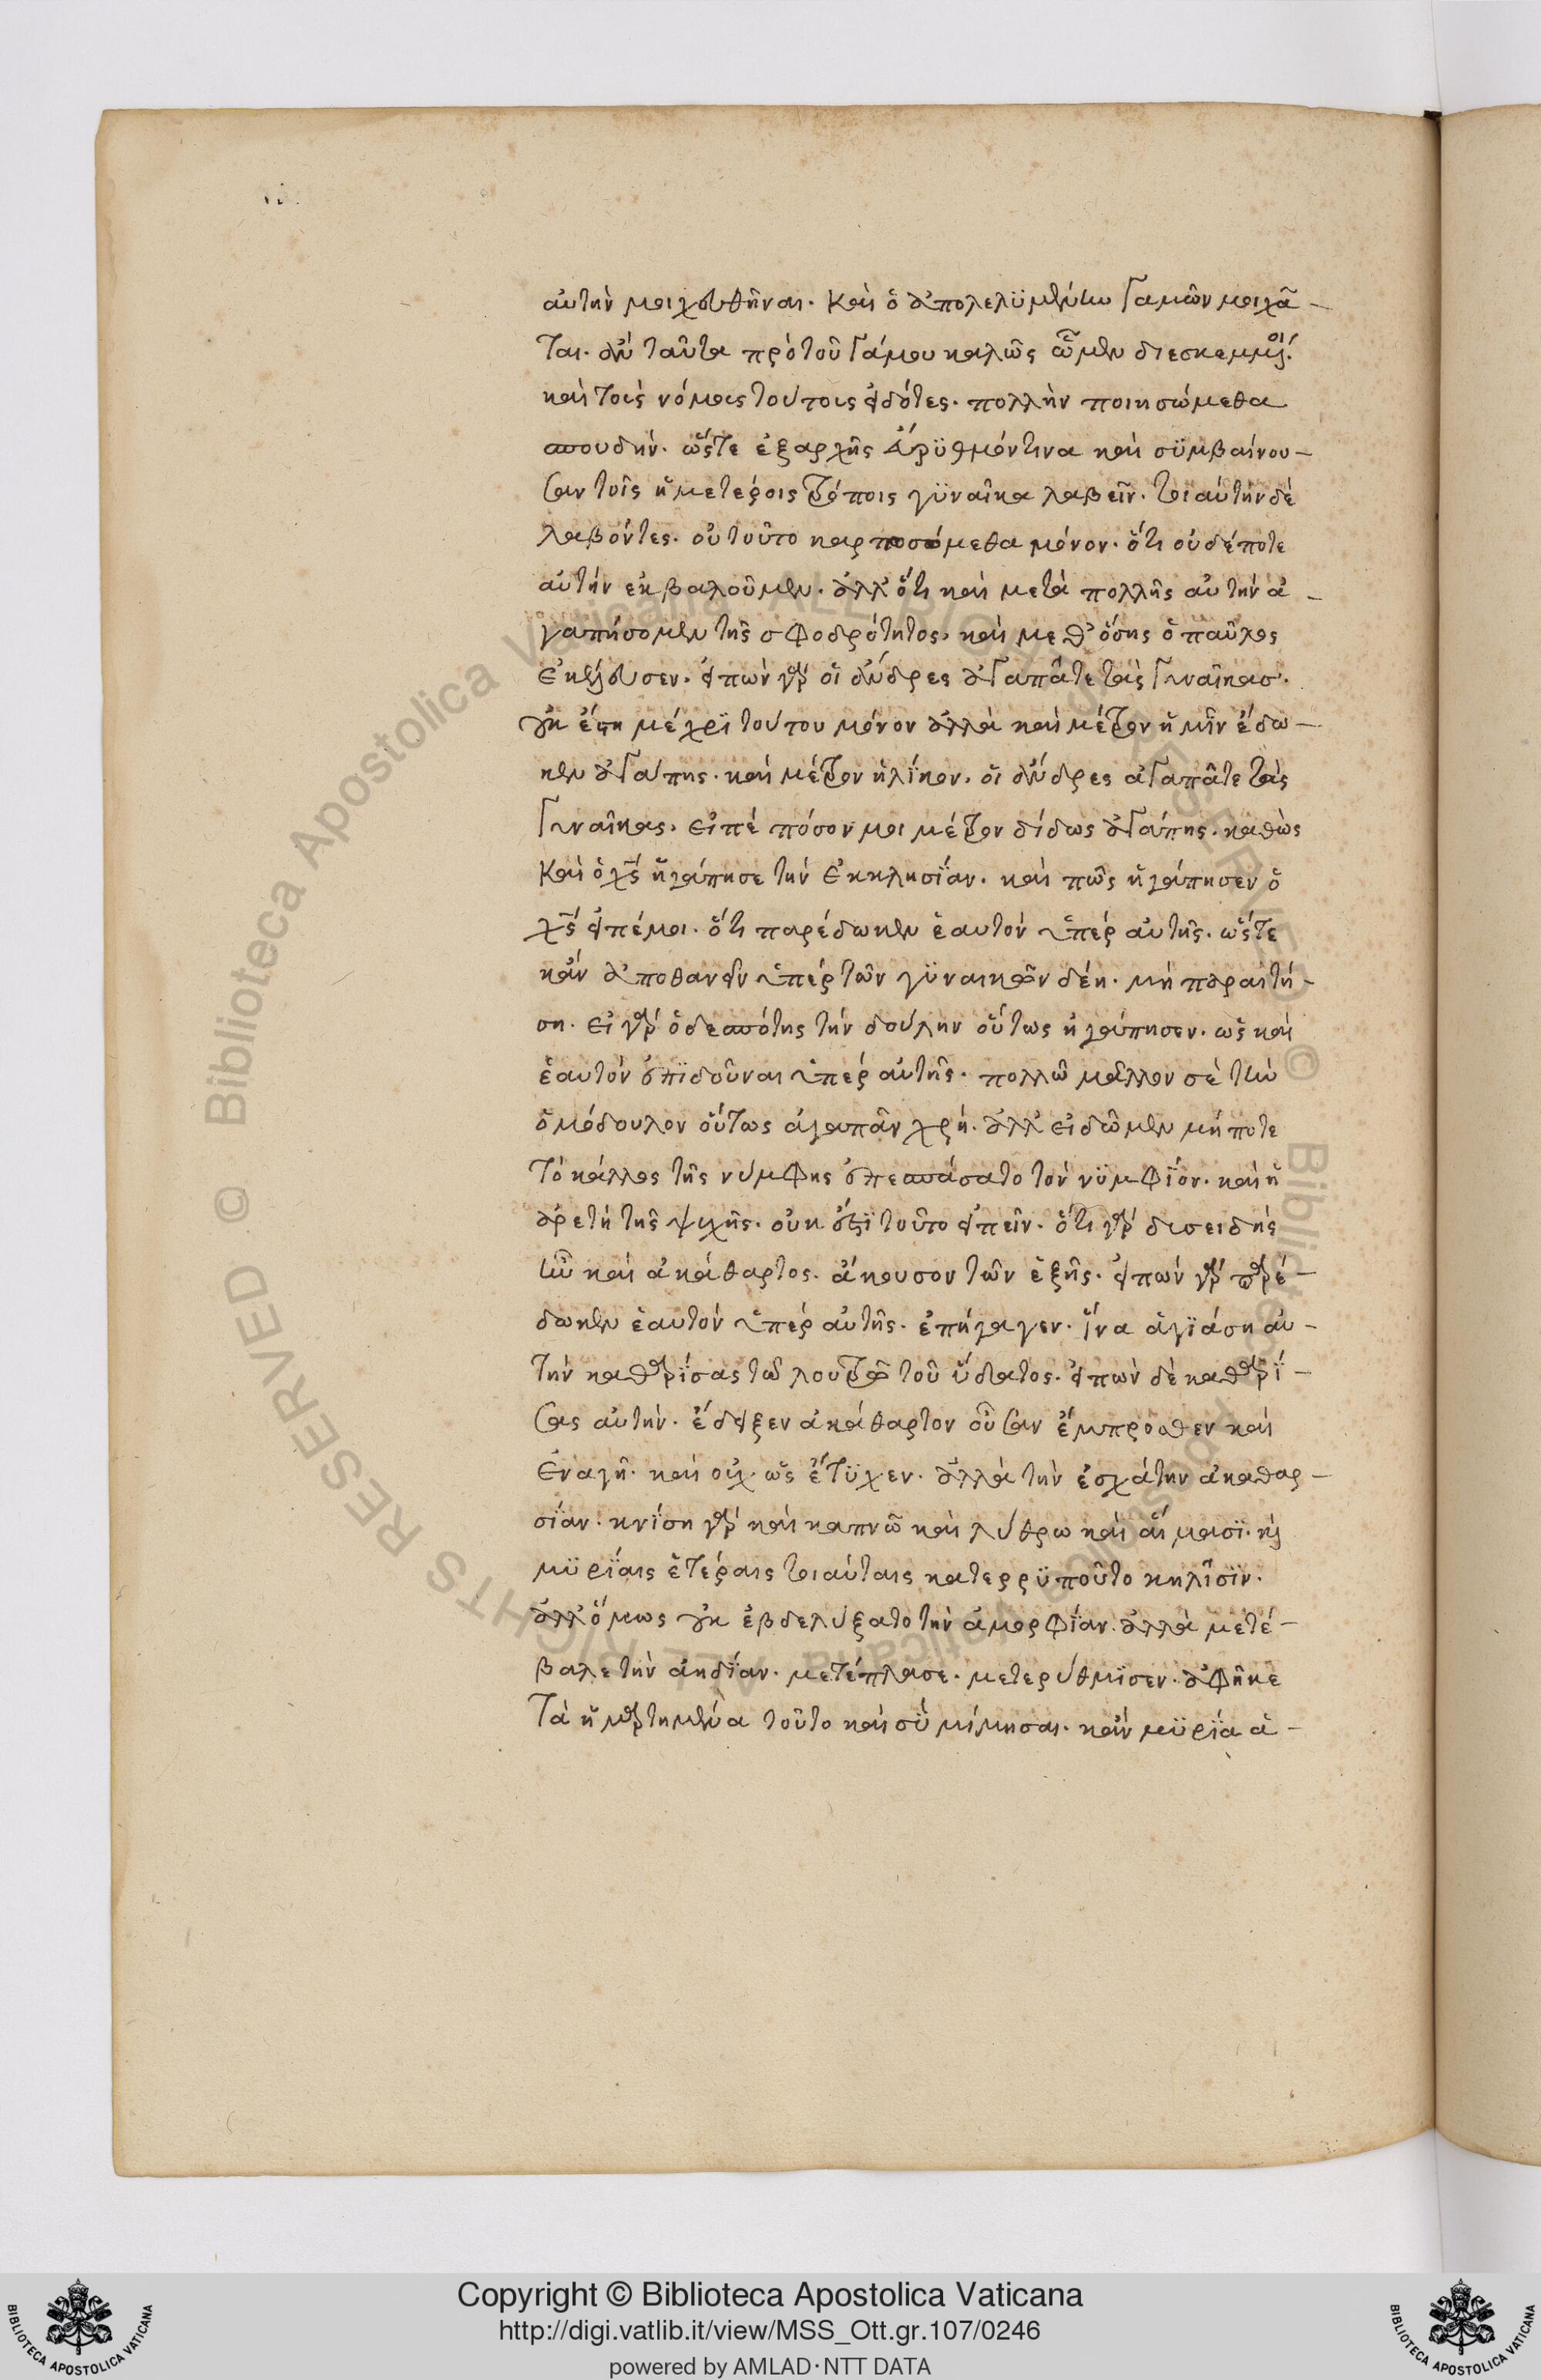 αὐτὴν μοιχευθῆναι. καὶ ὁ ἀπολελϋμένην γαμῶν μοιχᾶ–
ται. ἂν ταῦτα πρὸ τοῦ γάμου καλῶς ὦμεν διεσκεμμένοι.
καὶ τοῖς νόμοις τούτοις εἰδότες. πολλὴν ποιησώμεθα
σπουδήν. ὥστε ἐξαρχῆς εὐρϋθμόν τινα καὶ σϋμβαίνου–
σαν τοῖς ἡμετέροις τρόποις γϋναῖκα λαβεῖν. τοιαύτην δὲ
λαβόντες. οὐ τοῦτο καρποσόμεθα μόνον. ὅτι οὐδέποτε
αὐτὴν ἐκβαλοῦμεν. ἀλλ' ὅτι καὶ μετὰ πολλῆς αὐτὴν ἀ–
γαπήσομεν τῆς σφοδρότητος, καὶ μεθ' ὅσης ὁ παῦλος
ἐκέλευσεν. εἰπὼν γὰρ οἱ ἄνδρες ἀγαπᾶτε τὰς γυναῖκασ.
οὐκ ἔστη μέχρϊ τούτου μόνον ἀλλὰ καὶ μέτρον ἡμῖν ἔδω–
κεν ἀγάπης. καὶ μέτρον ἡλΐκον. οἱ ἄνδρες ἀγαπᾶτε τὰς
γυναῖκας. εἰπὲ πόσον μοι μέτρον δίδως ἀγάπης. καθὼς
καὶ ὁ χς ἠγάπησε τὴν ἐκκλησΐαν. καὶ πῶς ἠγάπησεν ὁ
χς εἰπέ μοι. ὅτι παρέδωκεν ἑαυτὸν ὑπὲρ αὐτῆς. ὥστε
κἂν ἀποθανεῖν ὑπὲρ τῶν γϋναικῶν δέη. μὴ παραιτή–
ση. εἰ γὰρ ὁ δεσπότης τὴν δούλην οὕτως ἠγάπησεν. ὡς καὶ
ἑαυτὸν ἐπϊδοῦναι ὑπὲρ αὐτῆς. πολλῶ μᾶλλον σὲ τὴν
ὁμόδουλον οὕτως ἀγαπᾶν χρή. ἀλλ' εἰδῶμεν μήποτε
τὸ κάλλος τῆς νύμφης ἐπεσπάσατο τὸν νϋμφΐον. καὶ ἡ
ἀρετὴ τῆς ψυχῆς. οὐκ ἔστϊ τοῦτο εἰπεῖν. ὅτι γὰρ δυσειδὴς
ἦν καὶ ἀκάθαρτος. ἄκουσον τῶν ἑξῆς. εἰπὼν γὰρ παρέ–
δωκεν ἑαυτὸν ὑπὲρ αὐτῆς. ἐπήγαγεν. ἵνα ἁγϊάση αὐ–
τὴν καθαρΐσας τῶ λουτρῶ τοῦ ὕδατος. εἰπὼν δὲ καθαρΐ–
σας αὐτὴν. ἔδειξεν ἀκάθαρτον οὖσαν ἔμπροσθεν καὶ
ἐναγῆ. καὶ οὐχ ὡς ἔτϋχεν. ἀλλὰ τὴν ἐσχάτην ἀκαθαρ–
σΐαν. κνΐση γὰρ καὶ καπνῶ καὶ λύθρω καὶ αἵμασϊ. καὶ
μϋρΐαις ἑτέραις τοιαύταις κατερρϋποῦτο κηλῖσϊν.
ἀλλ' ὅμως οὐκ ἐβδελύξατο τὴν ἀμορφΐαν. ἀλλὰ μετέ–
βαλε τὴν ἀηδΐαν. μετέπλασε. μετερύθμϊσεν. ἀφῆκε
τὰ ἡμαρτημένα τοῦτο καὶ σὺ μίμησαι. κἂν μϋρΐα ἁ–
Copyright © Biblioteca Apostolica Vaticana
http://digi.vatlib.it/view/MSS_Ott.gr.107/0246
powered by AMLAD·NTT DATA